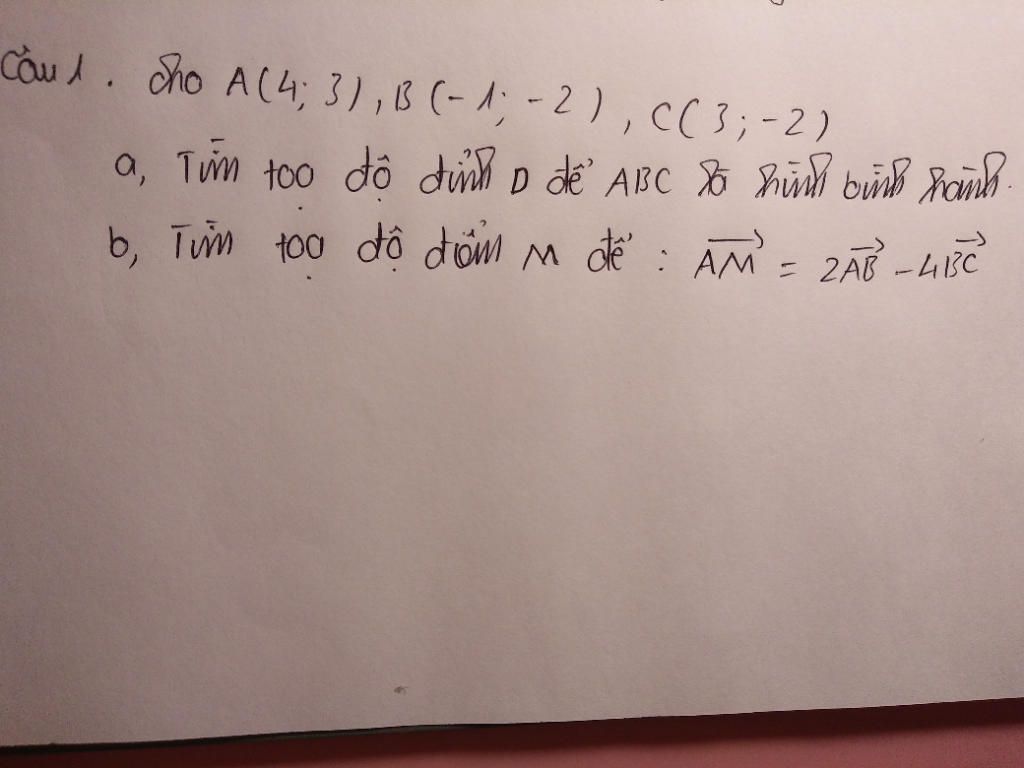 Câu 1. Cho A(4; 3), B(-1; -2), C(3; -2)
a, Tìm toạ độ đỉnh D để ABC là hình bình hành.
b, Tìm toạ độ điểm M để : \overrightarrow{AM} = 2\overrightarrow{AB} - 4\overrightarrow{BC}